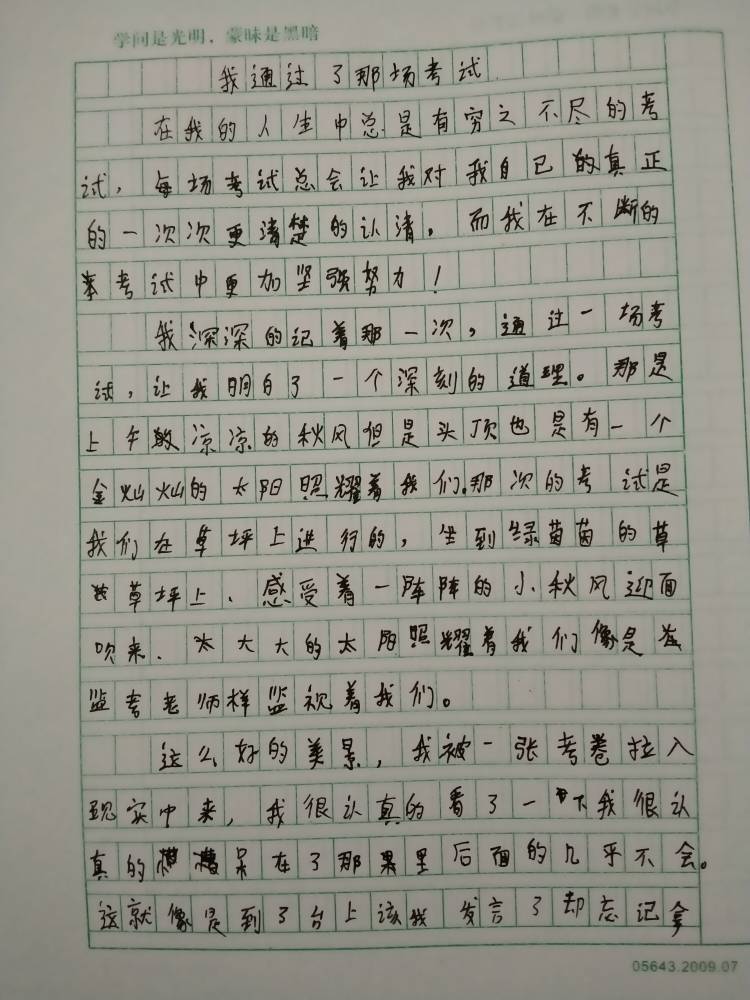 学问是光明，蒙昧是黑暗
我通过了那场考试
在我的人生中总是有穷之不尽的考
试，每场考试总会让我对我自己的真正
的一次次更清楚的认清，而我在不断的
考试中更加坚强努力！
我深深的记着那一次，通过一场考
试，让我明白了一个深刻的道理。那是
上午敢凉凉的秋风但是头顶也是有一个
金灿灿的太阳照耀着我们。那次的考试是
我们在草坪上进行的，坐到绿茵茵的草
草坪上、感受着一阵阵的小秋风迎面
吹来、大大大的太阳照耀着我们像是
监考老师样监视着我们。
这么好的美景，我被一张考卷拉入
现实中来，我很认真的看了一下我很认
真的呆在了那里后面的几乎不会。
这就像是到了台上该我发言了却忘记拿
05643.2009.07